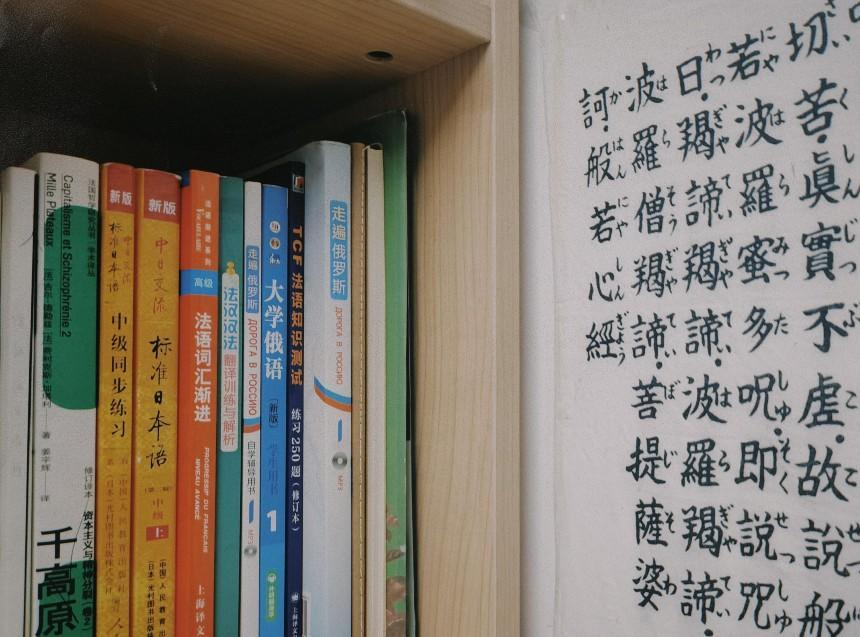 法国哲学研究丛书·学术译丛
Capitalisme et Schizophrénie 2
Mille Plateaux
著 姜宇辉 译
修订译本
千高原
新版
中日交流
标准日本语
中级同步练习
新版
中日交流
标准日本语
中级
上
高级
法语词汇渐进
PROGRESSIF DU FRANÇAIS
NIVEAU AVANCÉ
上海译文
法汉汉法
翻译训练与解析
走遍俄罗斯
ДОРОГА В РОССИЮ
自学辅导用书
1
MP3
大学俄语
(新版)
学生用书
1
TCF 法语知识测试
练习250题(修订本)
上海译文
走遍俄罗斯
ДОРОГА В РОССИЮ
1
MP3
切苦。眞實不虚。故説般
さい く しん じつ ぶ こ こ せつ
若波羅蜜多呪。即説咒
にや は ら みつ た しゅ そく せつ しゅ
曰。羯諦。羯諦。波羅羯諦。
わつ ぎや てい ぎや てい は ら ぎや てい
波羅僧羯諦。菩提薩婆
は ら そう ぎや てい ば じ そ わ
訶。般若心經
か はん にや しん ぎよう